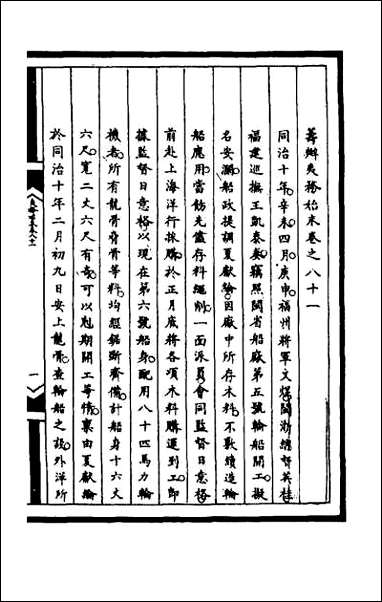 籌辦夷務始末卷之八十一
同治十年辛未四月庚申福州將軍文煜閩浙總督英桂
福建巡撫王凱泰奏竊照閩省船廠第五號輪船開工擬
名安瀾船政提調夏獻綸因廠中所存木料不敷續造輪
船應用當飭先儘存料繩削一面派員會同監督日意格
前赴上海洋行採購於正月底將各項木料購運到工即
據監督日意格以現在第六號船身配用八十匹馬力輪
機者所有龍骨脅骨等料均經鋸斷齊備計船身十六丈
六尺寬二丈六尺有奇可以尅期開工等情稟由夏獻綸
於同治十年二月初九日安上龍骨查輪船之設外洋所
一